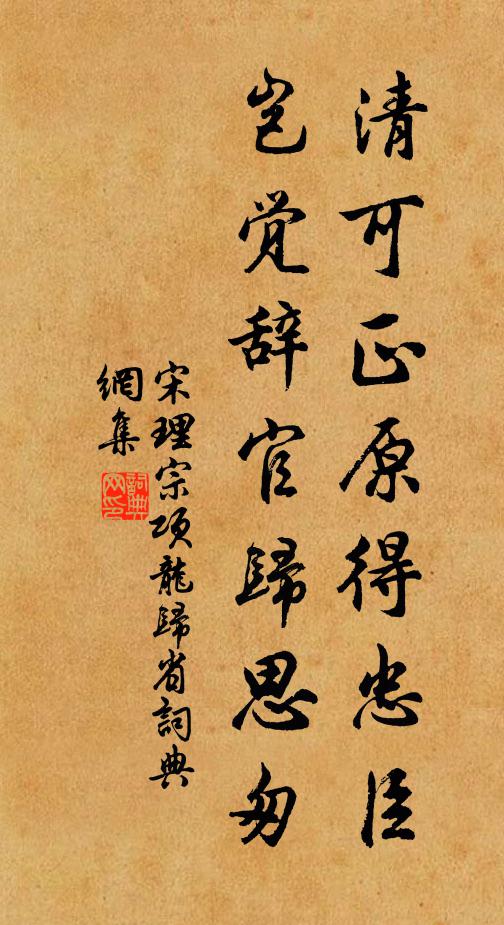 清可正原得忠臣
岂觉辞官歸思匆
宋理宗项龍歸省詞典
網集
詞典
网印